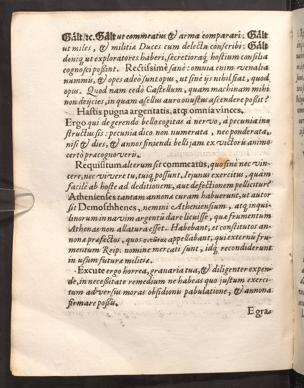 Gält/ꝛc. Gält ut commeatus & arma comparari: Gält
ut miles, & militiæ Duces cum delectu conscribi: Gält
deniq; ut exploratores haberi, secretioraq; hostium consilia
cognosci possint. Rectissimè sanè: omnia enim venalia
nummis, & opes adeò sunt opus, ut sine ijs nihil fiat, quod
opus. Quod nam cedò Castellum, quam machinam mihi
non dixjcies, in quam asellus auro onustus ascendere possit?
Hastis pugna argentatis, atq; omnia vinces,
Ergo qui de gerendo bello cogitas à nervo, à pecunia in-
structus sis: pecunia dico non numerata, nec ponderata,
nisi & dies, & annos finiendi belli jam ex victoris animo
certò præcognoveris.
Requisitum alterum sit commeatus, quo sine nec vin-
cere, nec vivere tu, tuiq; possunt, Jejunus exercitus, quàm
facilè ab hoste ad deditionem, aut defectionem pellicitur?
Athenienses tantam annonæ curam habuerunt, ut autor
sit Demosthenes, nemini Atheniensium, atq; inqui-
linorum in navim argentũ dare licuisse, quæ frumentum
Athenas non allatura esset. Habebant, et constitutos an-
nonæ præfectos, quos appellabant, qui externũ fru-
mentum Reip: nomine mercati sunt, idq; reconderunt
in usum futuræ militiæ.
Excute ergo horrea, granaria tua, & diligenter expen-
de, in necessitate remedium ne habeas quo justum exerci-
tum adversus moras obsidionis pabulatione, & annona
firmare possis.
Egra-